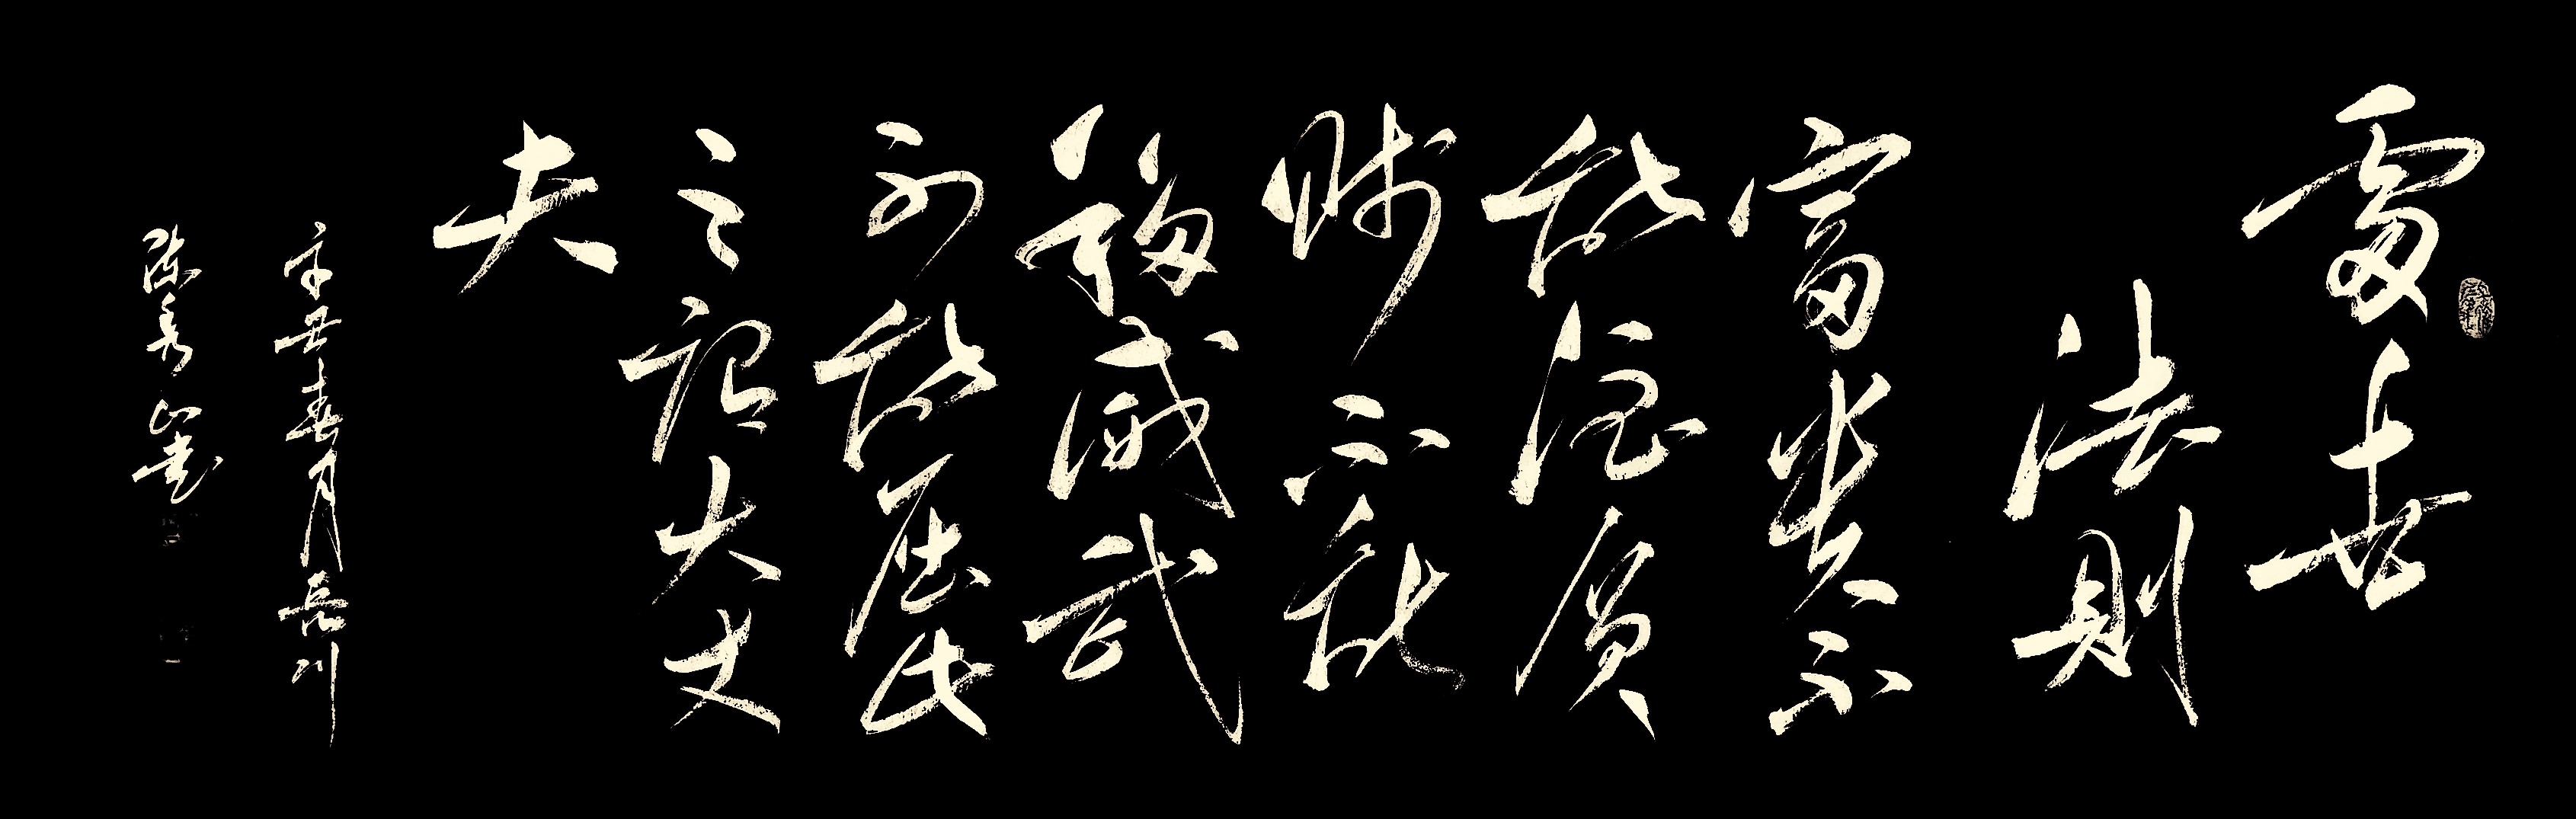 處世
法則
富貴不
能淫貧
賤不能
移威武
不能屈此
之謂大丈
夫
辛丑春月長川
陈秀山書